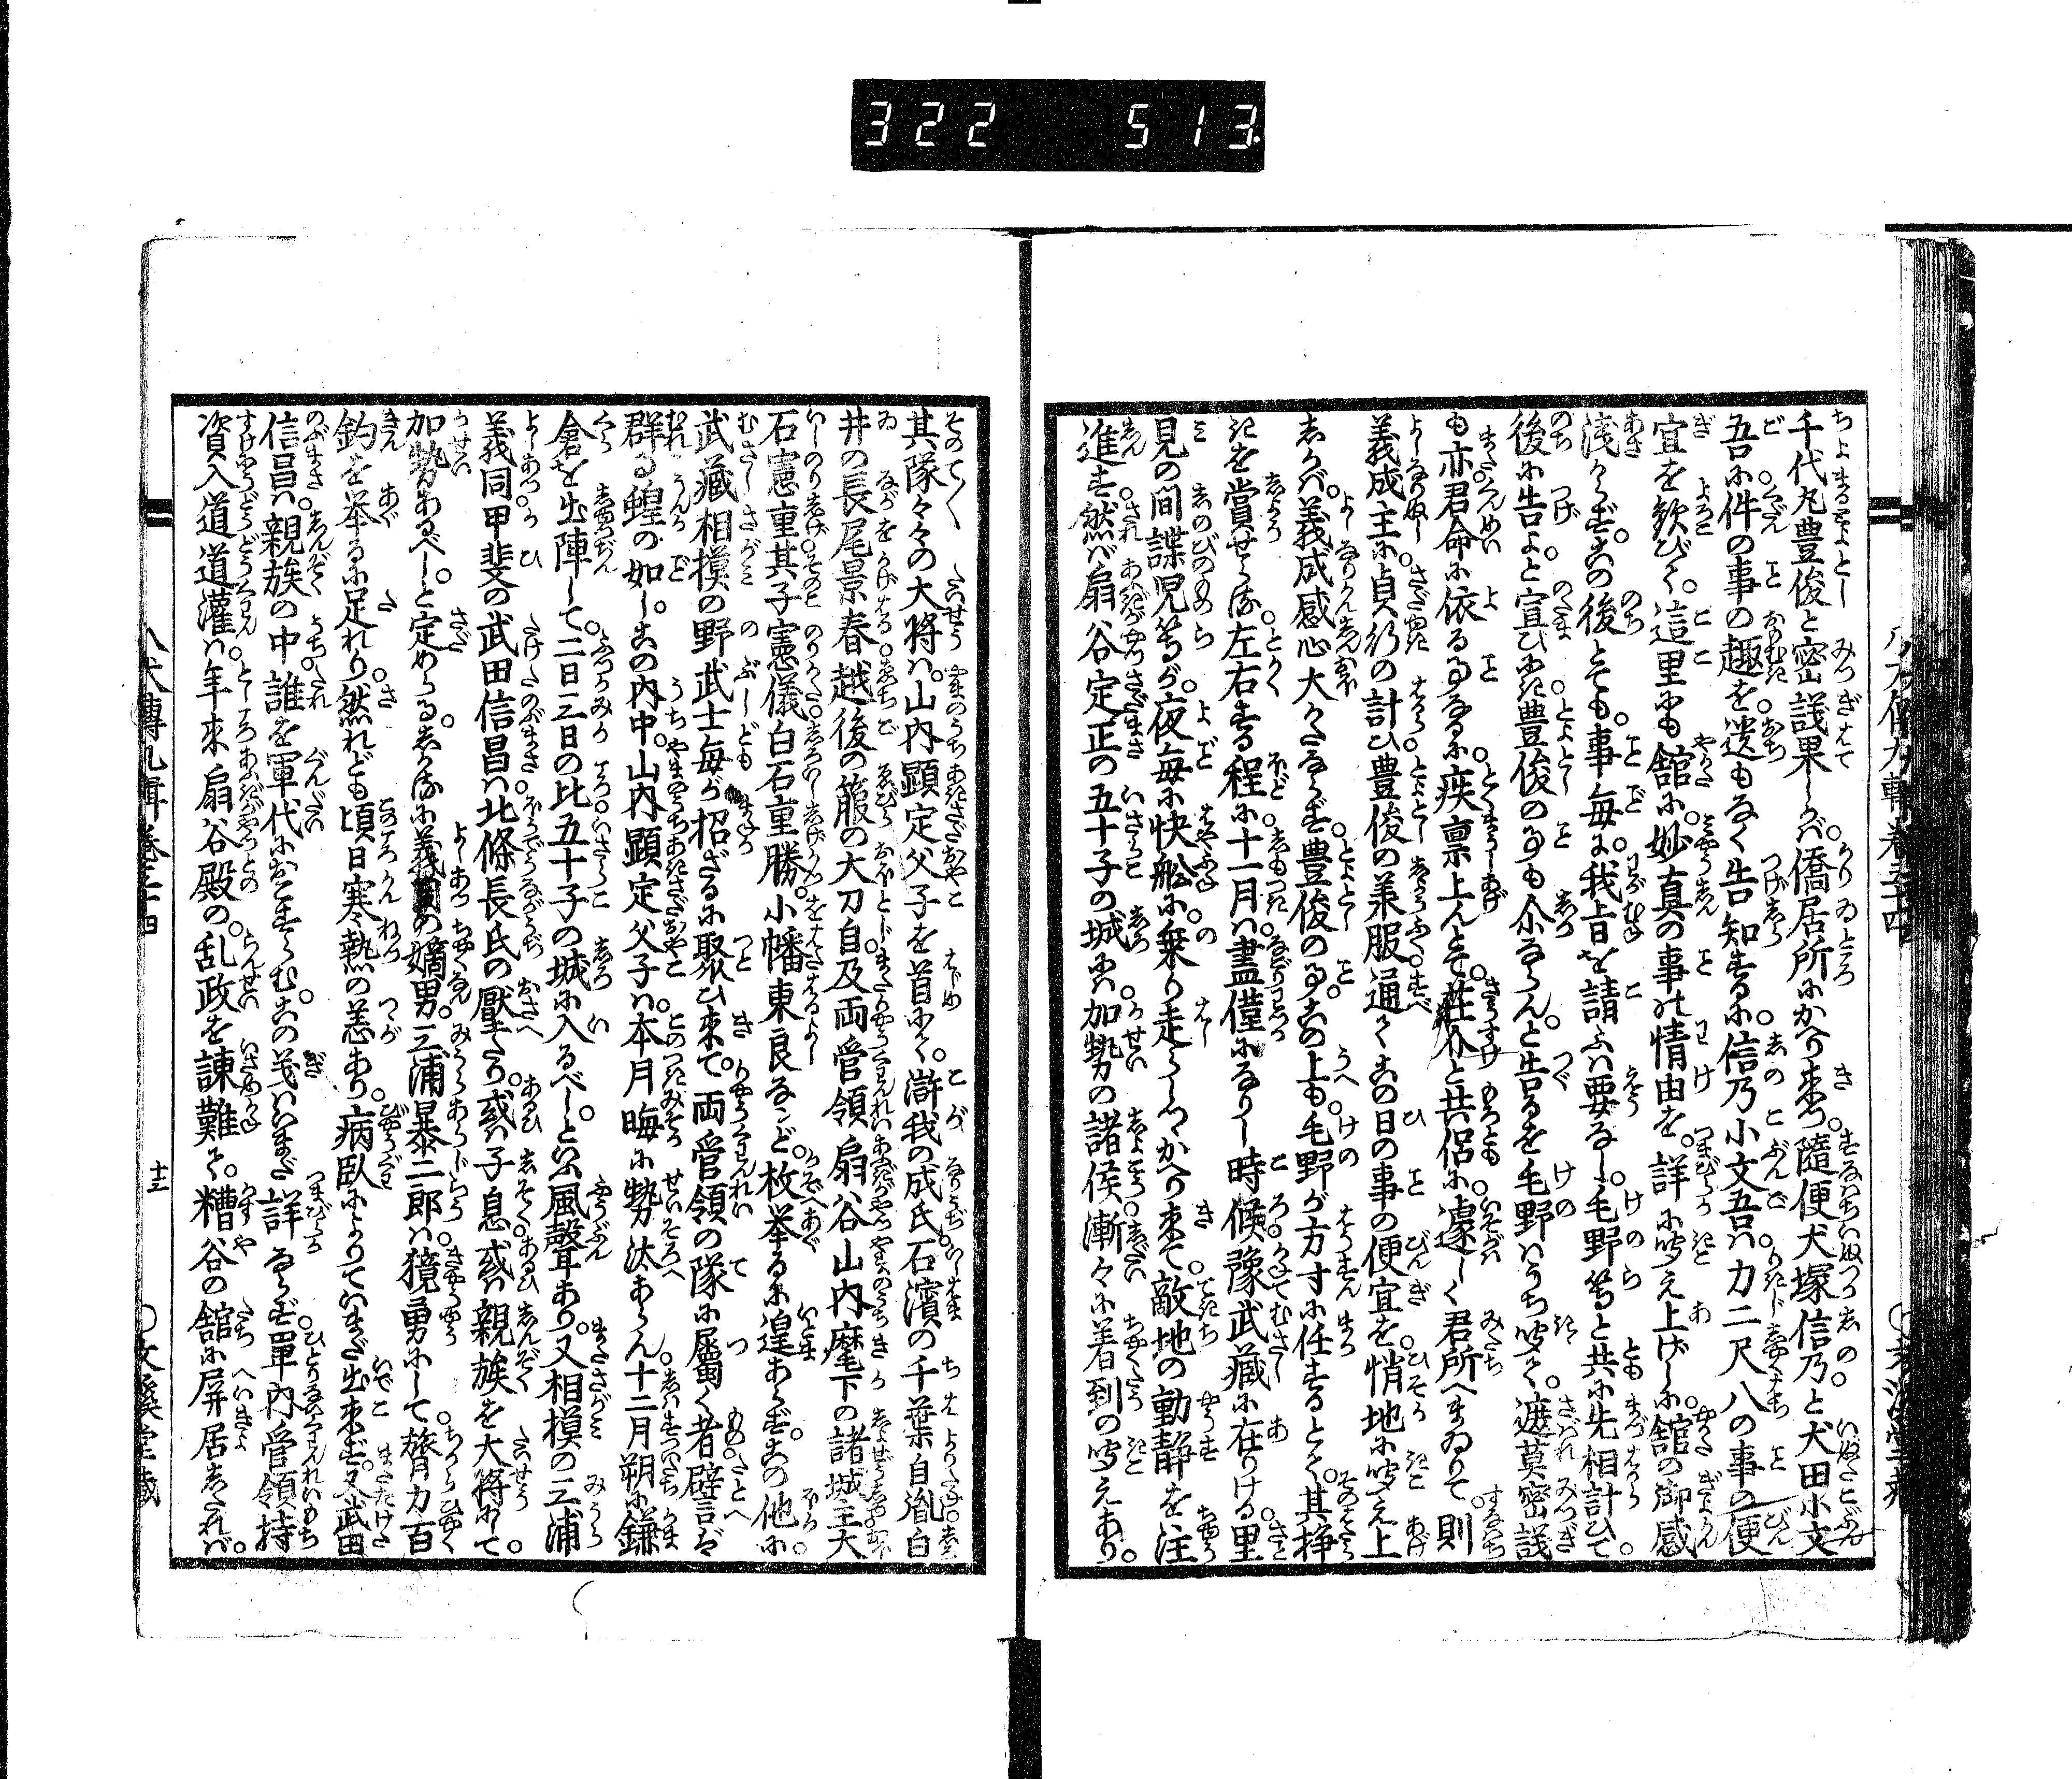 322 513
千代丸豊俊と密議果しかば。僑居所にかへり来つ。隨便犬塚信乃と犬田小文
吾に件の事の趣を。遺もなく告知するに。信乃小文吾は力二尺八の事の便
宜を歓びて。這里にも舘に。妙真の事の情由を。詳に聞え上げしに。舘の御感
浅からず。この後とても事毎に。我旨を請ふは要なし。毛野等と共に先相計ひて。
後に告よ。と宣ひにき。豊俊の事も尒ならん。と告るを毛野はうち聞て。遮莫密議
も亦君命に依る事なるに。疾禀上んとて。荘介と共侶に。遽しく君所へまゐりて。則
義成主に貞行の計ひ。豊俊の羕服。通てこの日の事の便宜を。悄地に聞え上
しかば。義成感心大かたならず。豊俊の事。この上も毛野が方寸に任するとて。其挣
きを賞せらる。左右する程に。十一月は盡僅になりし時候。豫武蔵に在りける。里
見の間諜児等が。夜毎に快舩に乗り走らしつ。かへり来て敵地の動静を注
進す。然ば扇谷定正の五十子の城には。加勢の諸侯漸々に着到の聞えあり。
八犬傳九輯巻三十四
其隊々々の大将は。山内顕定父子を首にて。滸我の成氏。石濱の千葉自胤。白
井の長尾景春。越後の箙の大刀自。及両管領扇谷山内麾下の諸城主。大
石憲重。其子憲儀。白石重勝。小幡東良など。枚挙るに遑あらず。この他に
武蔵相摸の野武士毎が。招ざるに聚ひ来て。両管領の隊に屬く者。譬言ば
群る蝗の如し。この内中。山内顕定父子は。本月晦に勢汰あらん。十二月朔に鎌
倉を出陣して。二日三日の比。五十子の城に入るべし。といふ風聲あり。又相摸の三浦
義同。甲斐の武田信昌は。北條長氏の壓たり。或は子息。或は親族を大将にして。
加勢あるべし。と定めらる。しかるに義同の嫡男。三浦暴二郎は。獷勇にして膂力百
鈞を挙るに足れり。然れども頃日寒熱の恙あり。病臥によりていまだ出来ず。又武田
信昌は。親族の中。誰を軍代におこすらむ。この義はいまだ詳ならず。單内管領持
資入道道灌は。年来扇谷殿の。乱政を諫難て。糟谷の舘に屏居したれば。
八犬傳九輯巻三十四
十三
文溪堂蔵